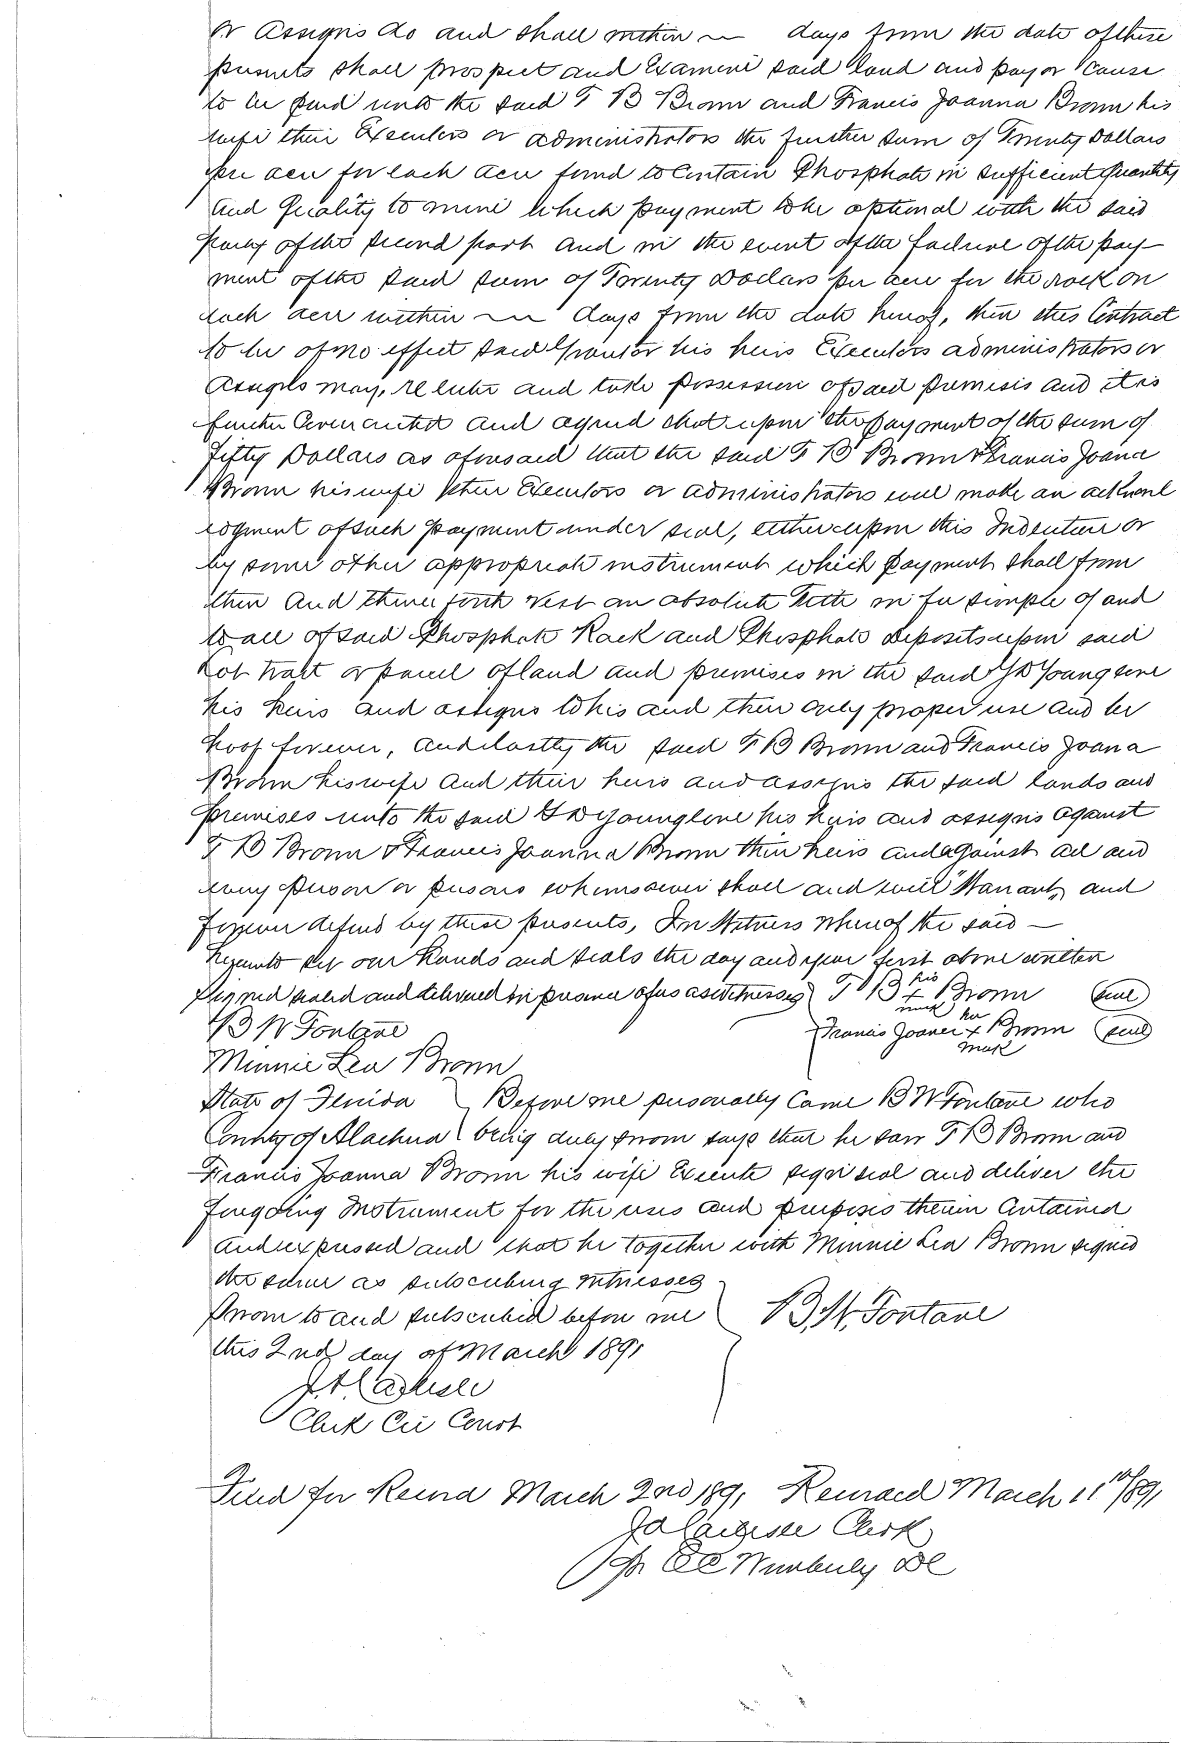 or assigns do and shall within ~ days from the date of these
presents shall prospect and Examine said land and pay or cause
to be paid unto the said T B Brown and Francis Joanna Brown his
wife their Executors or administrators the further sum of Twenty Dollars
per acre for each acre found to Contain Phosphate in sufficient Quantity
and Quality to mine which payment to be optional with the said
party of the second part and in the event of the failure of the pay-
ment of the said sum of Twenty Dollars per acre for the rock on
each acre within ~ days from the date hereof, then this Contract
to be of no effect said Grantor his heirs Executors administrators or
assigns may, re enter and take possession of said premises and it is
further Covenanted and agreed that upon the payment of the sum of
Fifty Dollars as aforesaid that the said T B Brown & Francis Joana
Brown his wife their Executors or administrators will make an acknowl
edgment of such payment under seal, either upon this Indenture or
by some other appropriate instrument which payment shall from
then and thence forth vest an absolute Title in fee simple of and
to all of said Phosphate Rock and Phosphate Deposits upon said
Lot tract or parcel of land and premises in the said G D Younglove
his heirs and assigns to his and their only proper use and be
hoof forever, and lastly the said T B Brown and Francis Joana
Brown his wife and their heirs and assigns the said lands and
premises unto the said G D Younglove his heirs and assigns against
T B Brown & Francis Joanna Brown their heirs and against all and
every person or persons whomsoever shall and will Warrant, and
forever defend by these presents, In Witness Whereof the said —
hereunto set our hands and seals the day and year first above written
Signed sealed and delivered in presence of us as witnesses T B his + mark Brown (seal)
B W Fontane Francis Joaner her + mark Brown (seal)
Minnie Lea Brown
State of Florida Before me personally came B W Fontane who
County of Alachua being duly sworn says that he saw T B Brown and
Francis Joanna Brown his wife Execute sign seal and deliver the
foregoing Instrument for the uses and purposes therein Contained
and expressed and that he together with Minnie Lea Brown signed
the same as subscribing witnesses
Sworn to and subscribed before me B. W. Fontane
this 2nd day of March 1891
J. A. Carlisle
Clerk Cir Court
Filed for Record March 2nd 1891 Recorded March 11th/891
J A Carlisle Clerk
pr C C Wimberly DC